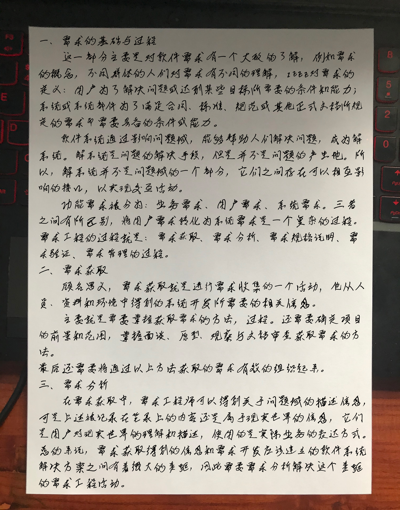 一、需求的基础与过程
这一部分主要是对软件需求有一个大致的了解，例如需求
的概念，不同群体的人们对需求有不同的理解，IEEE对需求的
定义：用户为了解决问题或达到某些目标所需要的条件和能力；
系统或系统部件为了满足合同、标准、规范或其他正式文档所规
定的要求中需要具备的条件或能力。
软件系统通过影响问题域，能够帮助人们解决问题，成为解
系统。解系统是问题的解决手段，但是并不是问题的产生地。所
以，解系统并不是问题域的一个部分，它们之间存在可以相互影
响的接口，以实现交互活动。
功能需求被分为：业务需求、用户需求、系统需求。三者
之间有所区别，将用户需求转化为系统需求是一个复杂的过程。
需求工程的过程就是：需求获取、需求分析、需求规格说明、需
求验证、需求管理的过程。
二、需求获取
顾名思义，需求获取就是进行需求收集的一个活动，他从人
员、资料和环境中得到的系统开发所需要的相关信息。
主要就是要掌握获取需求的方法，过程。还需要确定项目
的前景和范围，掌握面谈、原型、观察与文档审查获取需求的方
法。
最后还需要将通过以上方法获取的需求有效的组织起来。
三、需求分析
在需求获取中，需求工程师可以得到关于问题域的描述信息，
可是上述被记录在笔录上的内容还是属于现实世界的信息，它们
是用户对现实世界的理解和描述，使用的是实际业务的表达方式。
总的来说，需求获取得到的信息和需求开发应该建立的软件系统
解决方案之间有着很大的差距，因此需要需求分析解决这个差距
的需求工程活动。